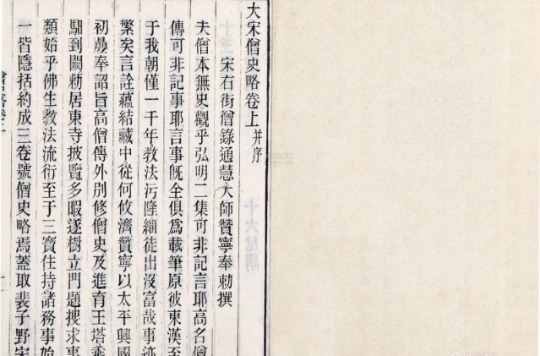 大宋僧史略卷上并序
宋右街僧錄通慧大師贊寧奉勅撰
夫僧本無史觀乎弘明二集可非記言耶高名僧
傳可非記事耶言事旣全俱爲載筆原彼東漢至
于我朝僅一千年教法污隆緇徒出沒富哉事迹
繁矣言詮蘊結藏中從何攸濟贊寧以太平興國
初疊奉詔旨高僧傳外別修僧史及進育王塔乘
馹到闕勅居東寺披覽多暇遂樹立門題搜求事
類始乎佛生教法流衍至于三寶住持諸務事始
一皆隱括約成三卷號僧史略焉蓋取裴子野宋